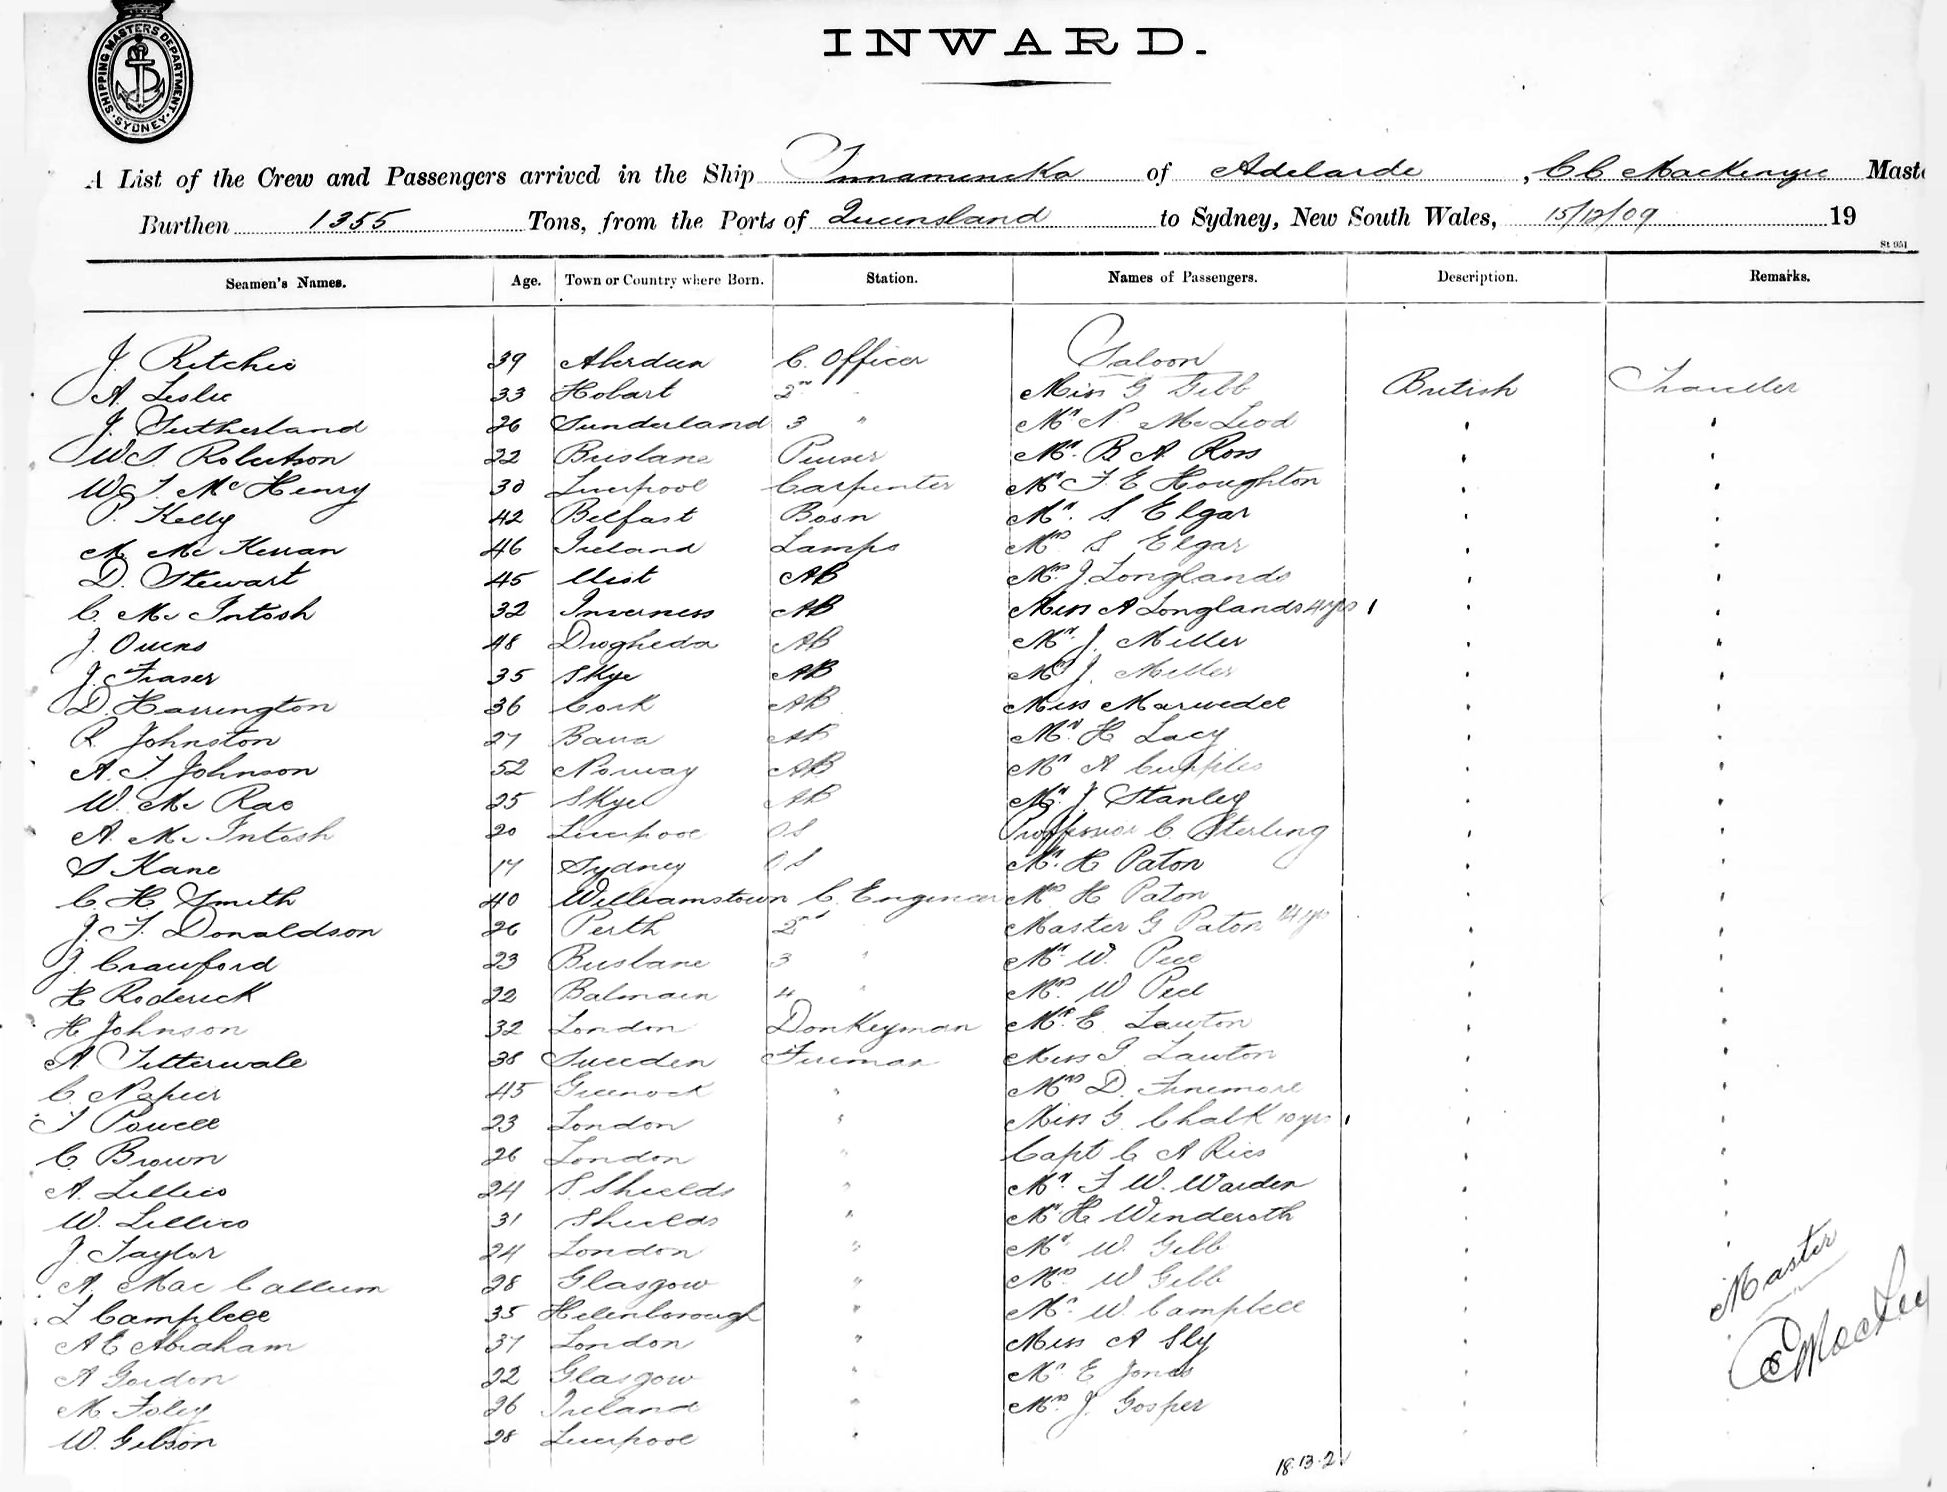 SHIPPING MASTERS DEPARTMENT SYDNEY
INWARD.
A List of the Crew and Passengers arrived in the Ship Innamincka of Adelaide, C C MacKenzie
Burthen 1355 Tons, from the Ports of Queensland to Sydney, New South Wales, 15/12/09 19
St 951
Seamen's Names. Age. Town or Country where Born. Station. Names of Passengers. Description. Remarks.
J. Ritchie 39 Aberdeen C. Officer Saloon
A. Leslie 33 Hobart 2nd " Miss G Gibb British Traveller
J. Sutherland 26 Sunderland 3 " Mr N. McLeod " "
W.S. Robertson 22 Brisbane Purser Mr. B A Ross " "
W. J. McHenry 30 Liverpool Carpenter Mr F. E Houghton " "
P. Kelly 42 Belfast Bosn Mr. S. Elgar " "
M. McKerran 46 Ireland Lamps Mrs S Elgar " "
D. Stewart 45 Uist AB Mrs J. Longlands " "
C. McIntosh 32 Inverness AB Miss A Longlands 4 yrs 1 " "
J. Owens 48 Drogheda AB Mr. J. Miller " "
J. Fraser 35 Skye AB J. Miller " "
D. Harrington 36 Cork AB Miss Marwedel " "
R. Johnston 27 Barra AB Mr. H Lacy " "
A. J. Johnson 52 Norway AB Mr A Cupples " "
W. McRae 25 Skye AB Mr. J. Stanley " "
A. McIntosh 20 Liverpool OS Professor C. Sterling " "
S Kane 17 Sydney OS Mr. H Paton " "
C. H. Smith 40 Williamstown C. Engineer Mrs H Paton " "
J. F. Donaldson 26 Perth 2nd " Master G Paton 14 yrs " "
J. Crawford 23 Brisbane 3 " Mr W. Peel " "
H Roderick 22 Balmain 4 " Mrs W Peel " "
H Johnson 32 London Donkeyman Mr E. Lawton " "
A. Titterwale 38 Sweden Fireman Miss Lawton " "
C. Napier 45 Greenock " Mrs D. Finemore " "
J Powell 23 London " Miss G. Chalk 10 yrs 1 " "
C. Brown 26 London " Capt C A Ries " "
A. Lillico 24 S Shields " Mr. F W. Warden " "
W. Lillico 31 Shields " Mr H Winderoth " "
J. Taylor 24 London " Mr. W. Gibb " "
A. MacCallum 28 Glasgow " Mrs W Gibb " "
L Campbell 35 Helenborough " Mr. W. Campbell " "
A E Abraham 37 London " Miss A Sly "
A Gordon 22 Glasgow " Mr E Jones "
M. Foley 26 Ireland " Mrs J. Gosper "
W. Gibson 28 Liverpool "
Master
18.13.2